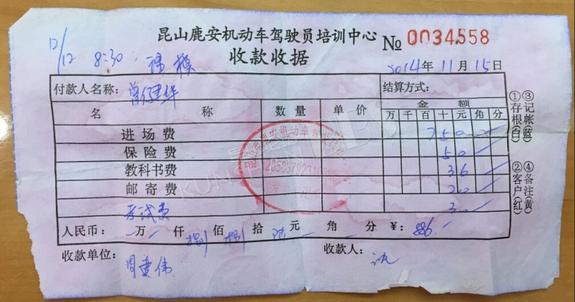 昆山鹿安机动车驾驶员培训中心
收款收据
№ 0034558
12/12 8:30
2014年11月15日
付款人名称:
结算方式:
名 称 数量 单价 金额
万 千 百 十 元 角 分
进场费 750
保险费 50
教科书费 36
邮寄费 20
人民币: 万 仟 佰 拾 元 角 分 ¥: 886
收款单位: 收款人:
①存根(白) ③记帐(蓝)
②客户(红) ④备注(黄)